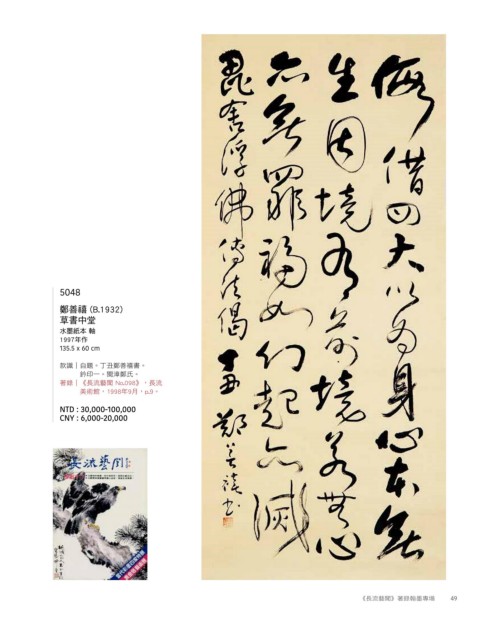 假借四大以為身心本無
生因境有前境若無心
亦無罪福如幻起亦滅
毘舍浮佛傳法偈 丁丑鄭善禧書
5048
鄭善禧 (B.1932)
草書中堂
水墨紙本 軸
1997年作
135.5 x 60 cm
款識｜自題。丁丑鄭善禧書。
鈐印一。閩漳鄭氏。
著錄｜《長流藝聞 No.098》，長流
美術館，1998年9月，p.9。
NTD : 30,000-100,000
CNY : 6,000-20,000
長流藝聞
《長流藝聞》著錄翰墨專場 49